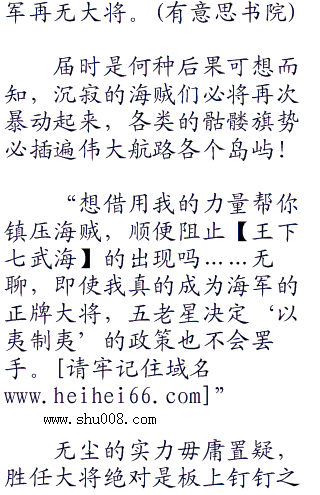 军再无大将。(有意思书院)
届时是何种后果可想而
知，沉寂的海贼们必将再次
暴动起来，各类的骷髅旗势
必插遍伟大航路各个岛屿！
“想借用我的力量帮你
镇压海贼，顺便阻止【王下
七武海】的出现吗……无
聊，即使我真的成为海军的
正牌大将，五老星决定‘以
夷制夷’的政策也不会罢
手。[请牢记住域名
www.heihei66.com]”
www.shu008.com
无尘的实力毋庸置疑，
胜任大将绝对是板上钉钉之